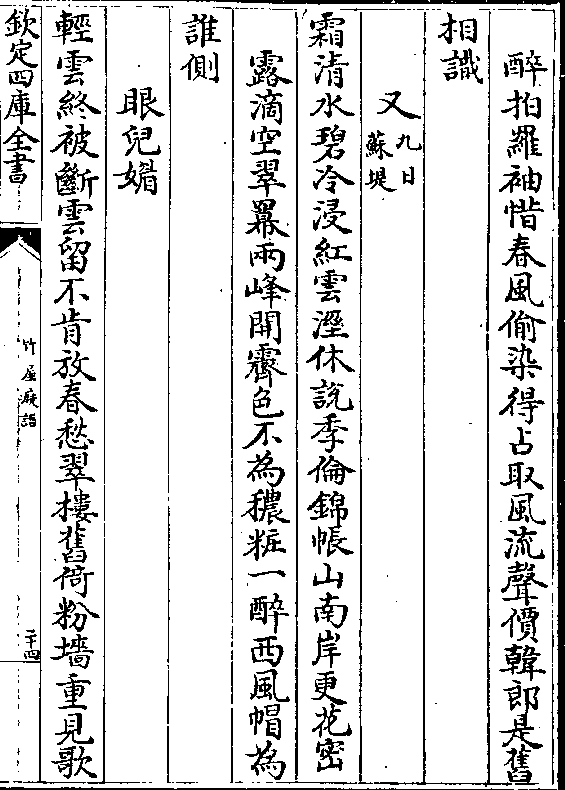 醉拍羅袖惜春風偷染得占取風流聲價韓郎是舊
相識
又九日蘇堤
霜清水碧冷浸紅雲溼休說季倫錦帳山南岸更花密
露滴空翠羃兩峰開霽色不為穠粧一醉西風帽為
誰側
眼兒媚
輕雲終被斷雲留不肯放春愁翠樓舊倚粉墻重見歌
欽定四庫全書
竹屋癡語
二十四